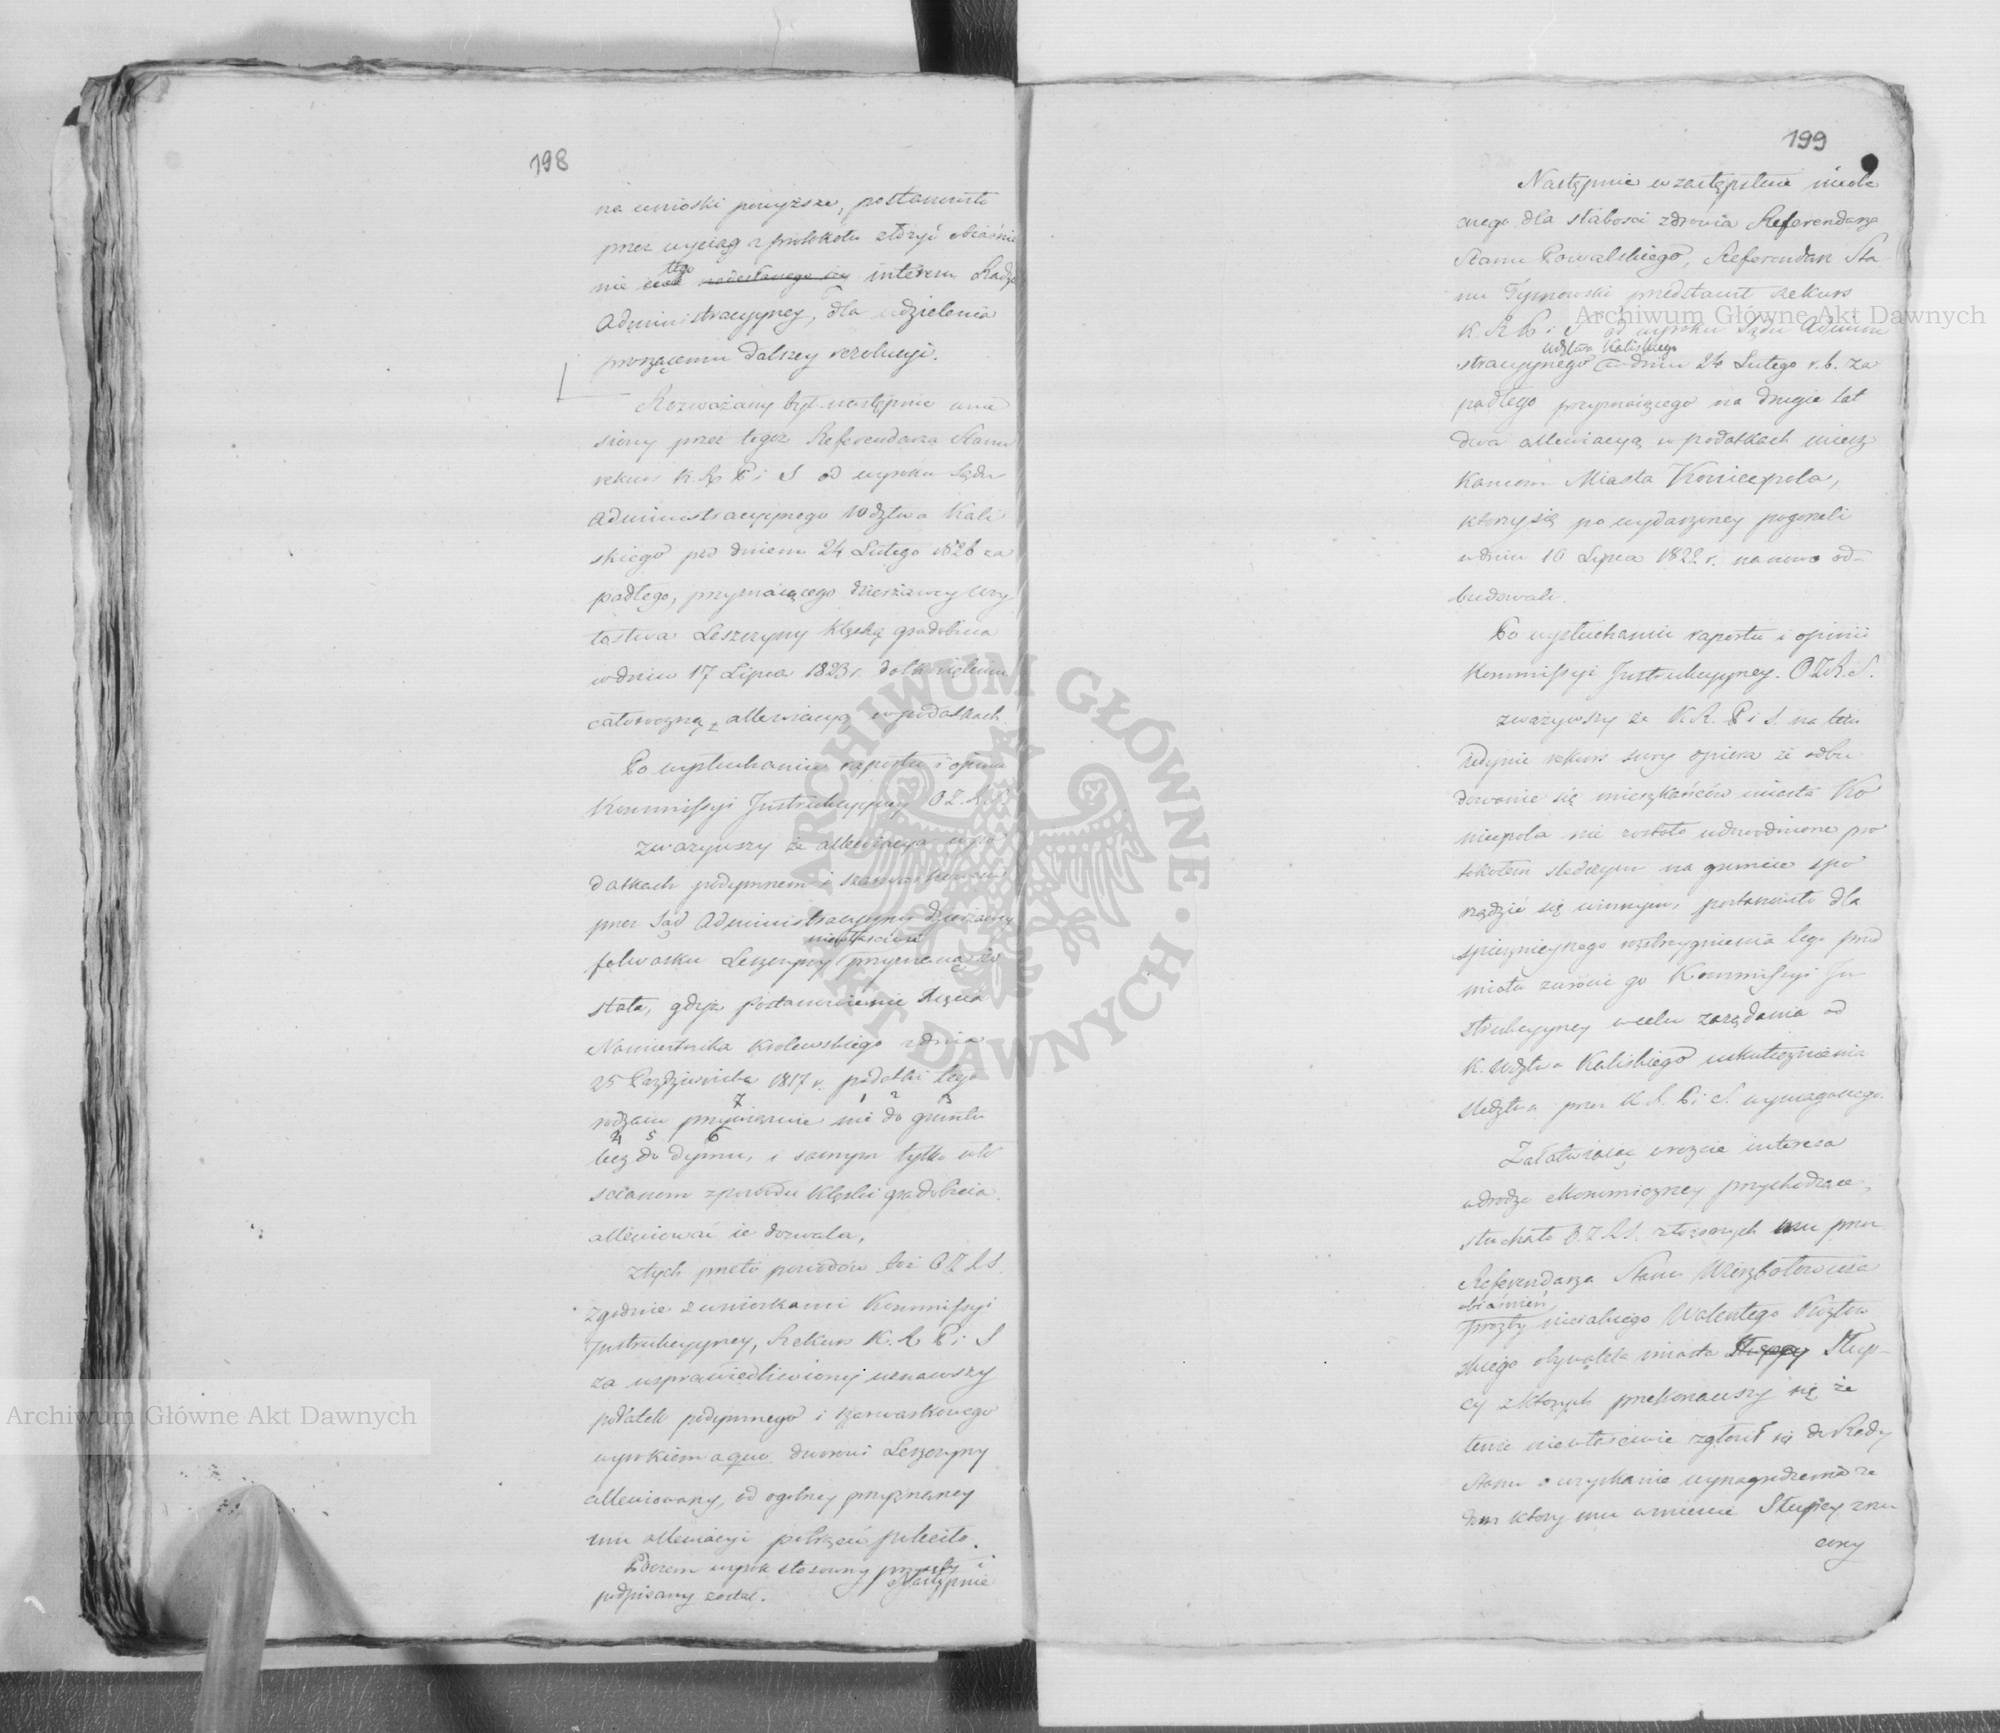 198
na wnioski powyższe, postanowiło
przez wyciąg z protokołu złożyć obiaśnie
nie tego interesu Radzie
Administracyyney, dla udzielenia
proszącemu dalszey rezolucyi.
Rozważany był następnie wnie
siony przez tegoż Referendarza Stanu
rekurs K. R. P i S od wyroku Sądu
Administracyynego Wdztwa Kali
skiego pod dniem 24 Lutego 1826 za
padłego, przyznaiącego dzierżawcy
Leszczyny klęską gradobicia
w dniu 17 Lipca 1823 r. dotkniętemu
całoroczną allewiacyą w podatkach.
Po wysłuchaniu raportu i opinii
Kommissyi Instrukcyyney O Z. R. S.
Zważywszy że allewiacya w po
datkach podymnem i szarwarkowem
przez Sąd Administracyyny dzierżawcy
niewłaściwie
folwarku Leszczyny przyznaną zo
stała, gdyż postanowienie Xięcia
Namiestnika Królewskiego z dnia
25 Października 1817 r. podatki tego
7 1 2 3
rodzaiu przywiązuie nie do gruntu
4 5 6
lecz do dymu, i samym tylko wło
scianom z powodu klęski gradobicia
allewiować ie dozwala,
z tych przeto powodów też O Z R S.
zgodnie z wnioskami Kommissyi
Instrukcyyney, Rekurs K. R P i S
za usprawiedliwiony uznawszy
podatek podymnego i szarwarkowego
wyrokiem a quo dworowi Leszczyny
allewiowany, od ogólney przyznaney
mu allewiacyi potrącić poleciło.
Poczem wyrok stosowny przyięty i
następnie
podpisany został.
199
Następnie w zastępstwie nieobe
cnego dla słabości zdrowia Referendarza
Stanu Kowalskiego, Referendarz Sta
nu Tymowski przedstawił rekurs
K R P i S od wyroku Sądu Admini
Wdztwa Kaliskiego
stracyynego w dniu 24 Lutego r. b. za
padłego przyznaiącego na drugie lat
dwa allewiacyą w podatkach miesz
kańcom Miasta Koniecpola,
którzy się po wydarzoney pogorzeli
w dniu 10 Lipca 1822 r. na nowo od-
budowali.
Po wysłuchaniu raportu i opinii
Kommissyi Instrukcyyney. O Z R. S.
zważywszy że K. R. P i S. na tem
iedynie rekurs swoy opiera że odbu
dowanie się mieszkańców miasta Ko
niecpola nie zostało udowodnione pro
tokołem śledczym na gruncie spo
rządzić się winnym, postanowiło dla
spiesznieyszego rozstrzygnienia tego przed
miotu zwrócić go Kommissyi In
strukcyyney w celu zarządania od
K. Wdztwa Kaliskiego uskutecznienia
śledztwa przez K. R. P i S. wymaganego.
Załatwiaiąc wreszcie interesa
w drodze ekonomiczney przychodzące,
słuchało O. Z R S. złożonych mu przez
Referendarza Stanu Wierzbołowicza
obiaśnień
prozby nieiakiego Walentego Kozłow
skiego obywatela miasta Słup-
cy z których przekonawszy się że
tenże niewłaściwie zgłosił się do Rady
Stanu o uzyskanie wynagrodzenia za
dom który mu w mieście Słupcy znisz
czony
Archiwum Główne Akt Dawnych
Archiwum Główne Akt Dawnych
ARCHIWUM GŁÓWNE AKT DAWNYCH